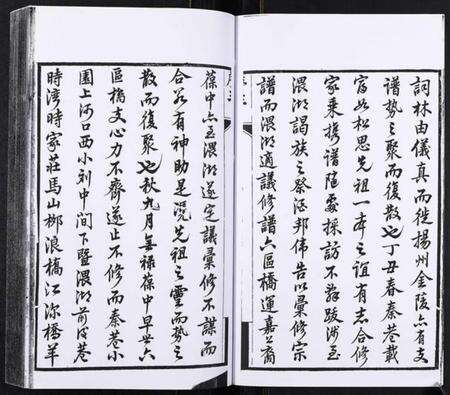 詞林由儀真而徙揚州金陵亦有支
譜勢之聚而復散也丁丑春秦巷載
富如松思先祖一本之誼有志合修
家乘携譜隨處採訪不辭跋涉至
澴湖謁族之祭酒邦偉告以彙修宗
譜而澴湖適議修譜六區橋運嘉公裔
葆中亦至澴湖遂定議彙修不謀而
合若有神助是說先祖之靈而勢之
散而復聚也秋九月無祿葆中早世六
區橋支心力不齊遂止不修而秦巷小
園上河口西小刘中間下暨澴湖前後巷
時湾時家莊馬山柳浪橋江涂橋羊